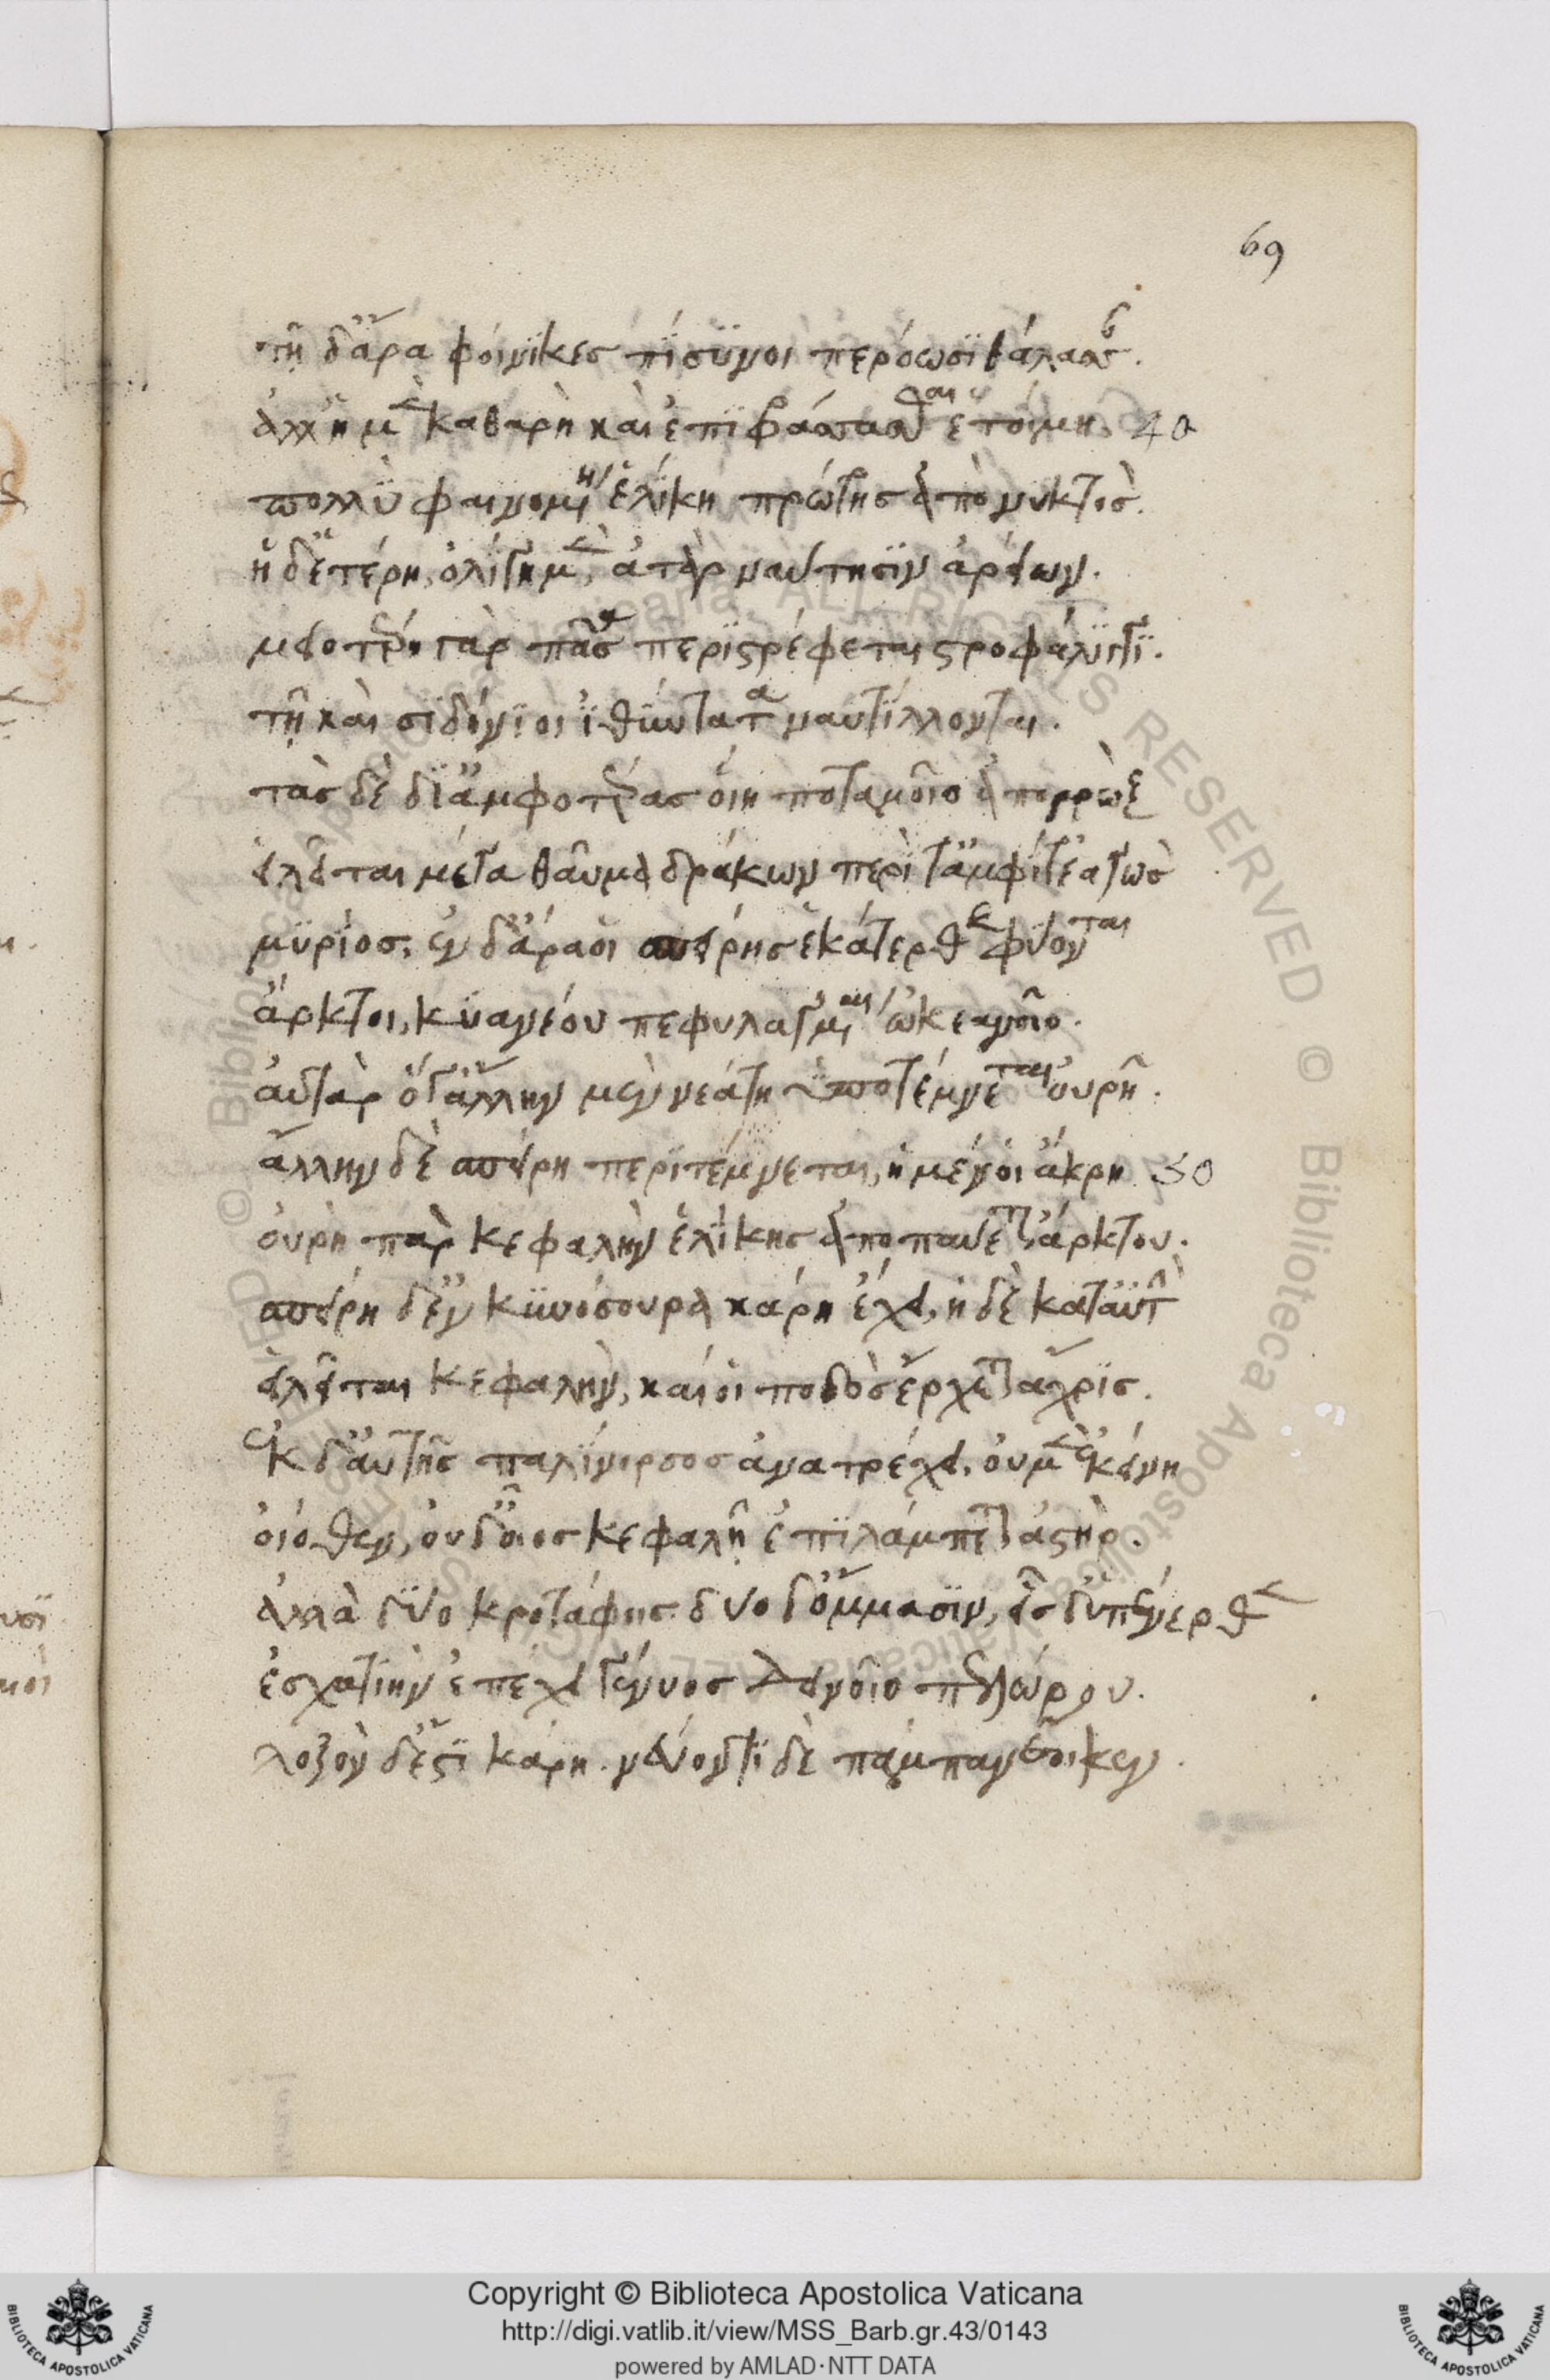 69
τῇ δ' ἄρα φοίνικες πίσυνοι περόωσι θάλασσαν.
ἀλλ' ἡ μὲν καθαρὴ καὶ ἐπιφράσσασθαι ἑτοίμη. 40
πολλὺ φαινομένη ἑλίκη πρώτης ἀπὸ νυκτός.
ἡ δ' ἑτέρη, ὀλίγη μὲν, ἀτὰρ ναύτησιν ἀρείων.
μειοτέρη γὰρ πᾶσα περιστρέφεται στροφάλιγγι.
τῇ καὶ σιδόνιοι ἰθύντατα ναυτίλλονται.
τὰς δὲ δι' ἀμφοτέρας οἵη ποταμοῖο ἀπορρὼξ
εἰλεῖται μέγα θαῦμα δράκων περί τ' ἀμφί τ' ἐαγὼς
μύριος, ἐν δ' ἄρα οἱ σπείρης ἑκάτερθε φύονται
ἄρκτοι, κυανέου πεφυλαγμέναι ὠκεανοῖο.
αὐτὰρ ὅγ' ἄλλην μὲν νεάτη ὑποτέμνεται οὐρῇ.
ἄλλην δὲ σπείρη περιτέμνεται, ἡ μέν οἱ ἄκρη 50
οὐρὴ παρ κεφαλὴν ἑλίκης ἀποπαύεται ἄρκτου.
σπείρη δ' ἐν κυνόσουρα κάρη ἔχει, ἡ δὲ κατ' αὐτὴν
εἰλεῖται κεφαλὴν, καί οἱ ποδὸς ἔρχεται ἄχρις.
ἐκ δ' αὐτῆς παλίνορσος ἀνατρέχει, οὐ μὲν ἐκείνη
οἰόθεν, οὐδ' οἶος κεφαλῇ ἐπιλάμπεται ἀστήρ.
ἀλλὰ δύο κροτάφης δύο δ' ὄμμασιν, εἷς δ' ὑπένερθεν
ἐσχατιὴν ἐπέχει γένυος δεινοῖο πελώρου.
λοξὸν δ' ἐστὶ κάρη. νεύοντι δὲ πάμπαν ἔοικεν.
Copyright © Biblioteca Apostolica Vaticana
http://digi.vatlib.it/view/MSS_Barb.gr.43/0143
powered by AMLAD·NTT DATA